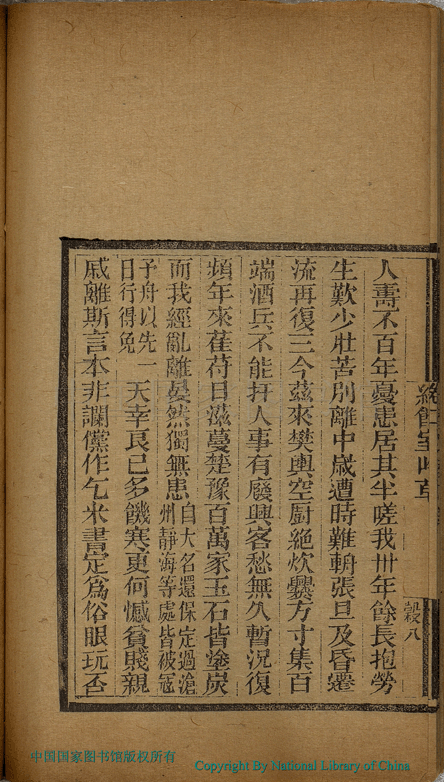 人壽不百年憂患居其半嗟我卅年餘長抱勞
生歎少壯苦別離中歲遭時難輈張旦及昏遷
流再復三今茲來樊輿空廚絶炊爨方寸集百
端酒兵不能扞人事有廢興客愁無久暫況復
頻年來萑苻日滋蔓楚豫百萬家玉石皆塗炭
而我經亂離晏然獨無患自大名還保定過滄州靜海等處皆破寇
予舟以先一日行得免天幸良已多饑寒更何憾貧賤親
戚離斯言本非讕儻作乞米書定爲俗眼玩否
穀八
中国国家图书馆版权所有
Copyright By National Library of China